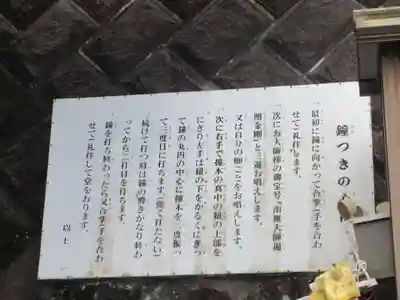 鐘つきの
一、最初に鐘に向かって合掌(手を合わ
せて)礼拝します。
一、次にお大師様の御宝号「南無大師遍
照金剛」と三遍お唱えします。
又は自分の願ごとをお唱えします。
一、次に右手で撞木の真中の紐の上部を
にぎり左手は紐の下をかるくにぎっ
て鐘の丸内の中心に撞木を一度振っ
て二度目に打ちます。(強く打たない)
続けて打つ時は鐘の響きがなり終わ
ってから二打目を打ちます。
鐘を打ち終わったら又合掌(手を合わ
せて)礼拝して堂をおります。
以上